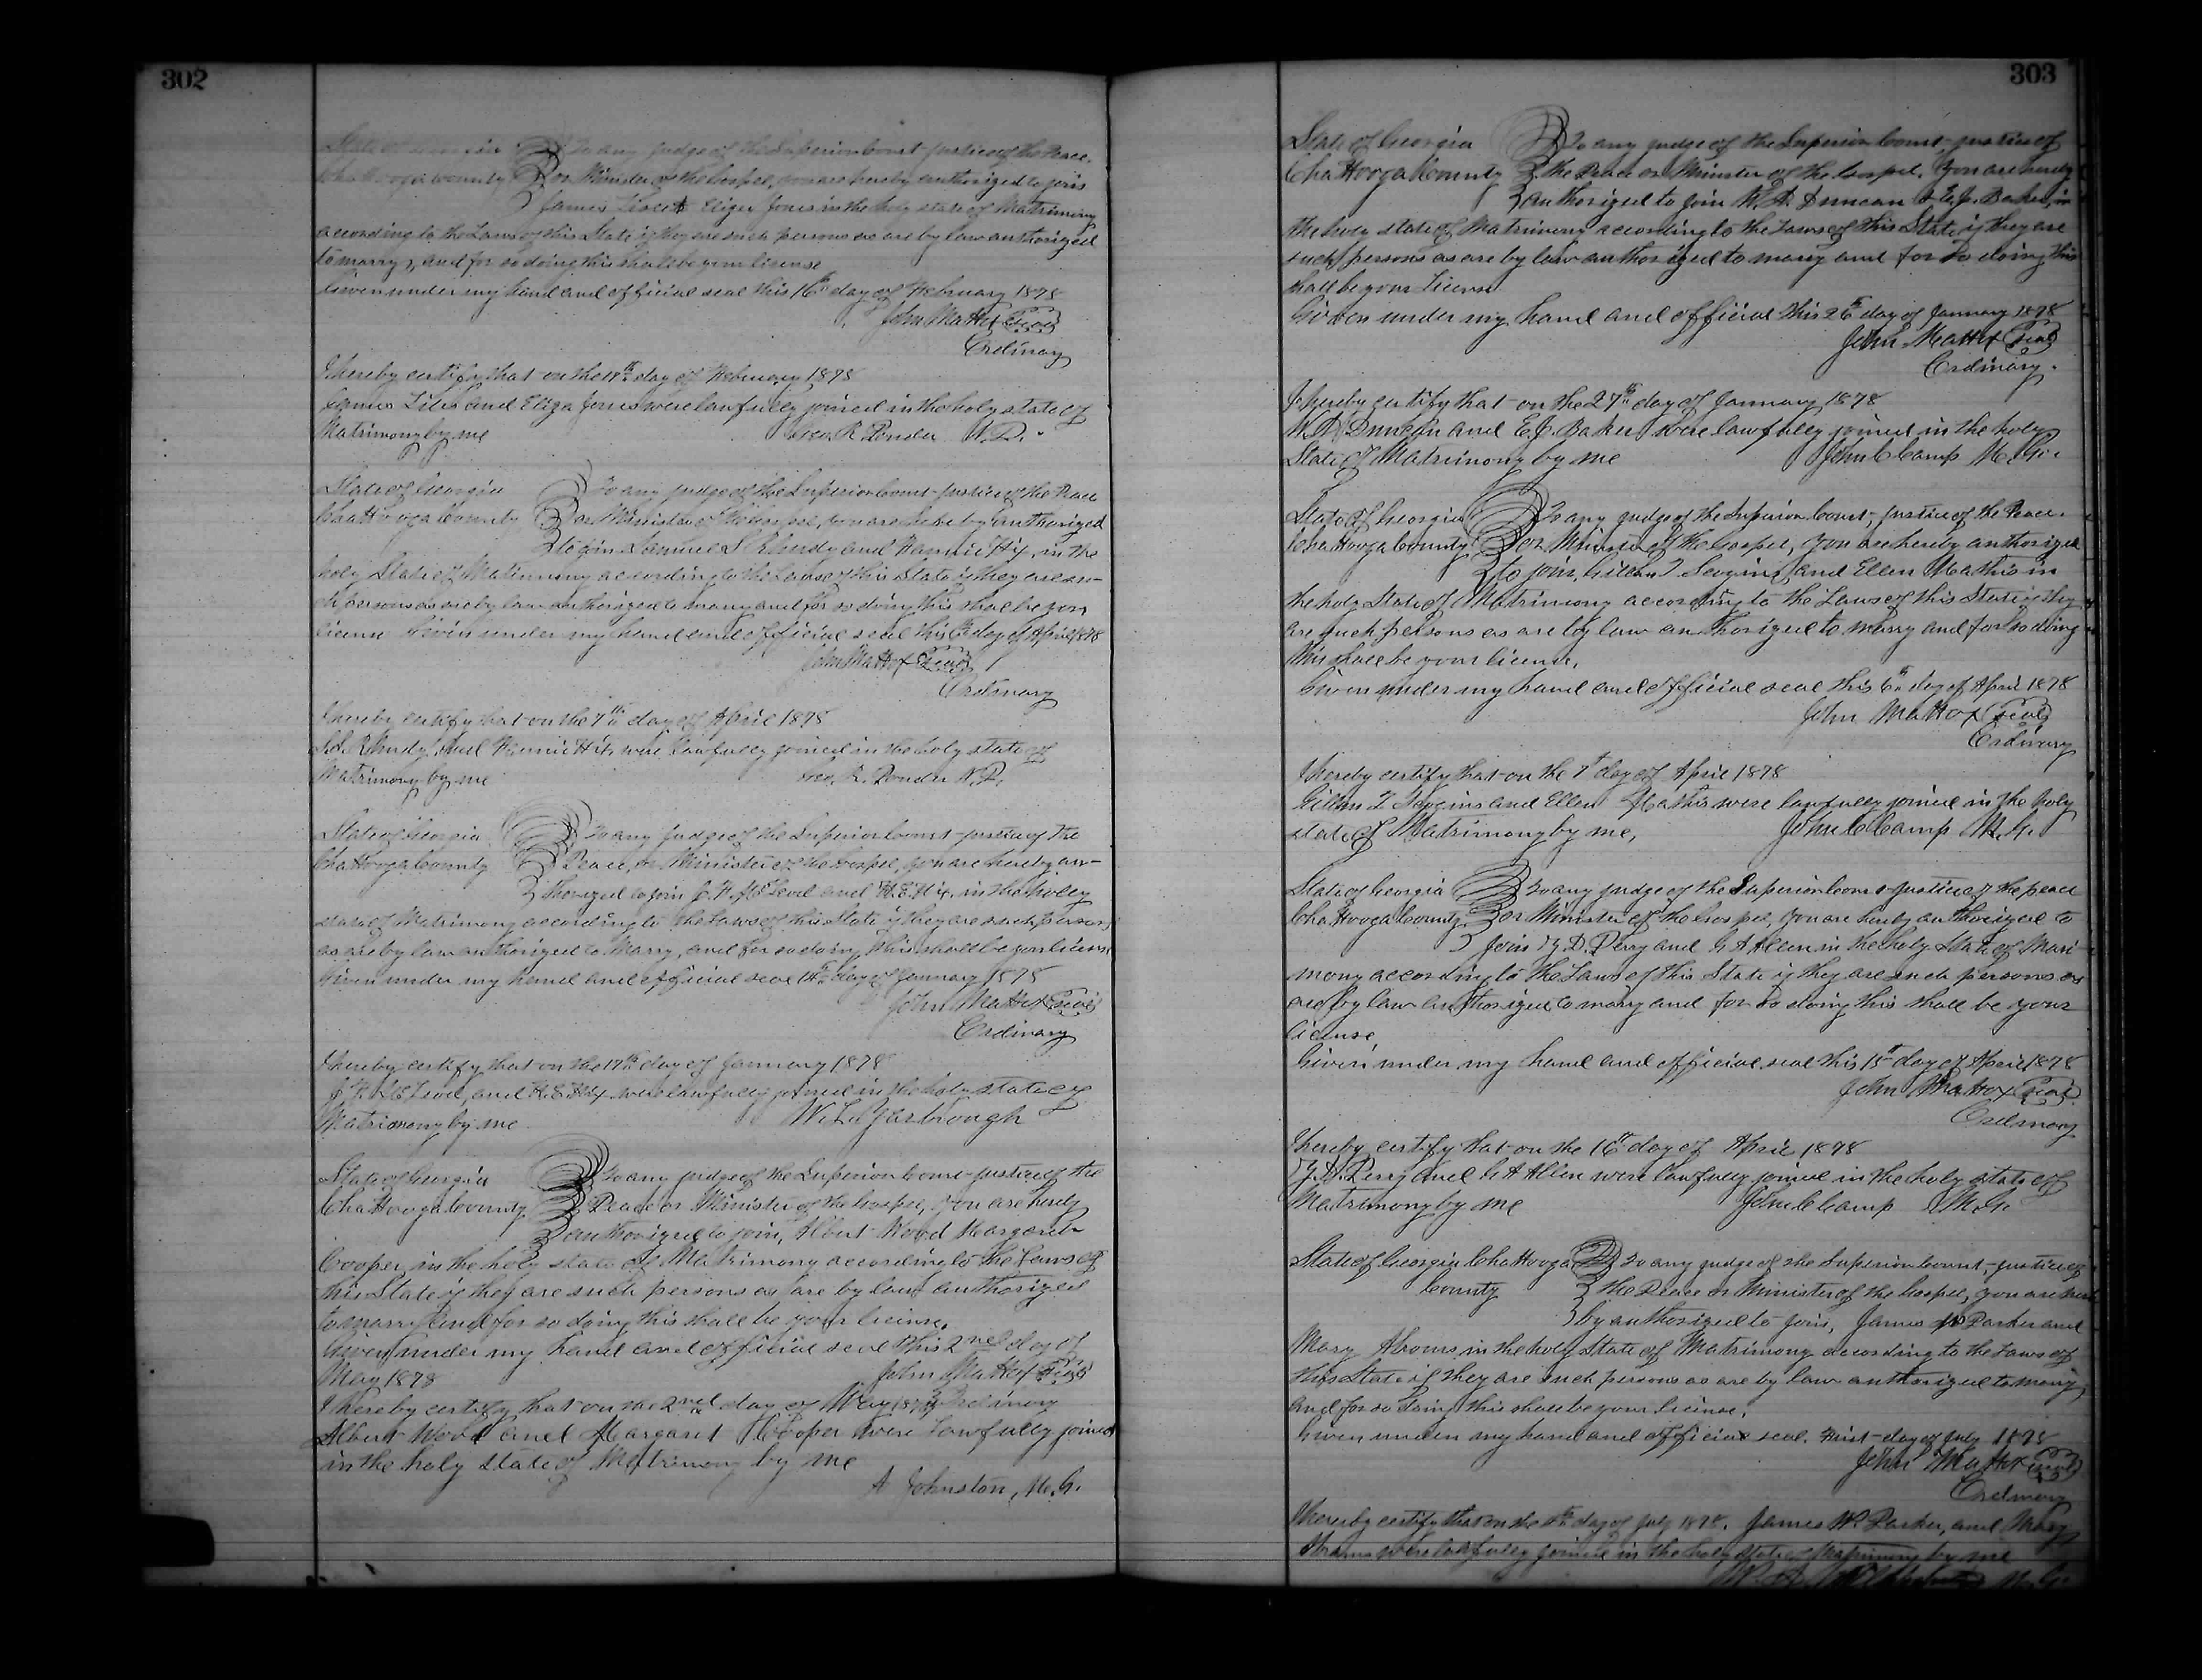 302
State of Georgia To any judge of the Superior Court justice of the Peace,
Chattooga County or Minister of the Gospel, you are hereby authorized to join
James Liles & Elizer Jones in the holy state of Matrimony
according to the Laws of this State if they are such persons as are by law authorized
to marry, and for so doing this shall be your license
Given under my hand and official seal this 16th day of February 1878
John Mattox Seal
Ordinary
I hereby certify that on the 17th day of February 1878
James Liles and Eliza Jones were lawfully joined in the holy state of
Matrimony by me Geo. R. Ponder N.P.
State of Georgia To any judge of the Superior Court justice of the Peace
Chattooga County or Minister of the Gospel, you are hereby authorized
to join Samuel S and Hix, in the
holy State of Matrimony according to the Laws of this State if they are su-
ch persons as are by law authorized to marry and for so doing this shall be your
license Given under my hand and official seal this 6th day of April 1878
John Mattox Seal
Ordinary
I hereby certify that on the 7th day of April 1878
and Hix were lawfully joined in the holy state of
Matrimony by me Geo. R. Ponder N.P.
State of Georgia To any judge of the Superior Court justice of the
Chattooga County Peace, or Minister of the Gospel, you are hereby au-
thorized to join J. F. and Hix, in the holy
state of Matrimony according to the Laws of this State if they are such persons
as are by law authorized to Marry, and for so doing this shall be your license
Given under my hand and official seal 14th day of January 1878
John Mattox Seal
Ordinary
I hereby certify that on the 17th day of January 1878
J. F. and Hix were lawfully joined in the holy state of
Matrimony by me W. L. Yarbrough
State of Georgia To any judge of the Superior Court justice of the
Chattooga County Peace or Minister of the Gospel, you are hereby
authorized to join, Albert Wood Margaret
Cooper, in the holy state of Matrimony according to the Laws of
this State if they are such persons as are by law authorized
to marry and for so doing this shall be your license.
Given under my hand and official seal this 2nd day of
May 1878 John Mattox Seal
I hereby certify that on the 2nd day of May 1878 Ordinary
Albert Wood and Margaret Cooper were lawfully joined
in the holy state of Matrimony by me
A Johnston, M.G.
303
State of Georgia To any judge of the Superior Court, justice of
Chattooga County the Peace or Minister of the Gospel. You are hereby
authorized to join W. A. Duncan & E. J. Baker, in
the holy state of Matrimony according to the Laws of this State if they are
such persons as are by law authorized to marry and for so doing this
shall be your license
Given under my hand and official this 26th day of January 1878
John Mattox Seal
Ordinary.
I hereby certify that on the 27th day of January 1878
W. A. Duncan and E. J. Baker were lawfully joined in the holy
State of Matrimony by me John C Camp M.G.
State of Georgia To any judge of the Superior Court, justice of the Peace.
Chattooga County or Minister of the Gospel, you are hereby authorized
to join, T Scogins and Ellen Mathis in
the holy State of Matrimony according to the Laws of this State if they
are such persons as are by law authorized to marry and for so doing
this shall be your license.
Given under my hand and official seal this 6th day of April 1878
John Mattox Seal
Ordinary
I hereby certify that on the 7th day of April 1878
T Scogins and Ellen Mathis were lawfully joined in the holy
state of Matrimony by me, John C Camp M.G.
State of Georgia To any judge of the Superior Court justice of the peace
Chattooga County or Minister of the Gospel, you are hereby authorized to
Join D. Perry and G A Allen in the holy State of Matri
mony according to the Laws of this State if they are such persons as
are by law authorized to marry and for so doing this shall be your
license,
Given under my hand and official seal this 15th day of April 1878
John Mattox Seal
Ordinary
I hereby certify that on the 16th day of April 1878
D. Perry and G A Allen were lawfully joined in the holy state of
Matrimony by me John C Camp M.G.
State of Georgia Chattooga To any judge of the Superior Court, justice of
County the Peace or Minister of the Gospel, you are here
by authorized to join, James W Parker and
Mary Abrams in the holy State of Matrimony according to the Laws of
this State if they are such persons as are by law authorized to marry
and for so doing this shall be your license.
Given under my hand and official seal. First day of July 1878
John Mattox Seal
Ordinary
I hereby certify that on the day of July 1878. James W. Parker, and Mary
Abrams were lawfully joined in the holy state of Matrimony by me
M.G.